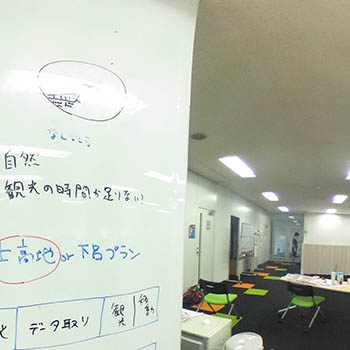 自然
観光の時間が足りない?
高地 or 下呂プラン
データ取り 観光 移動